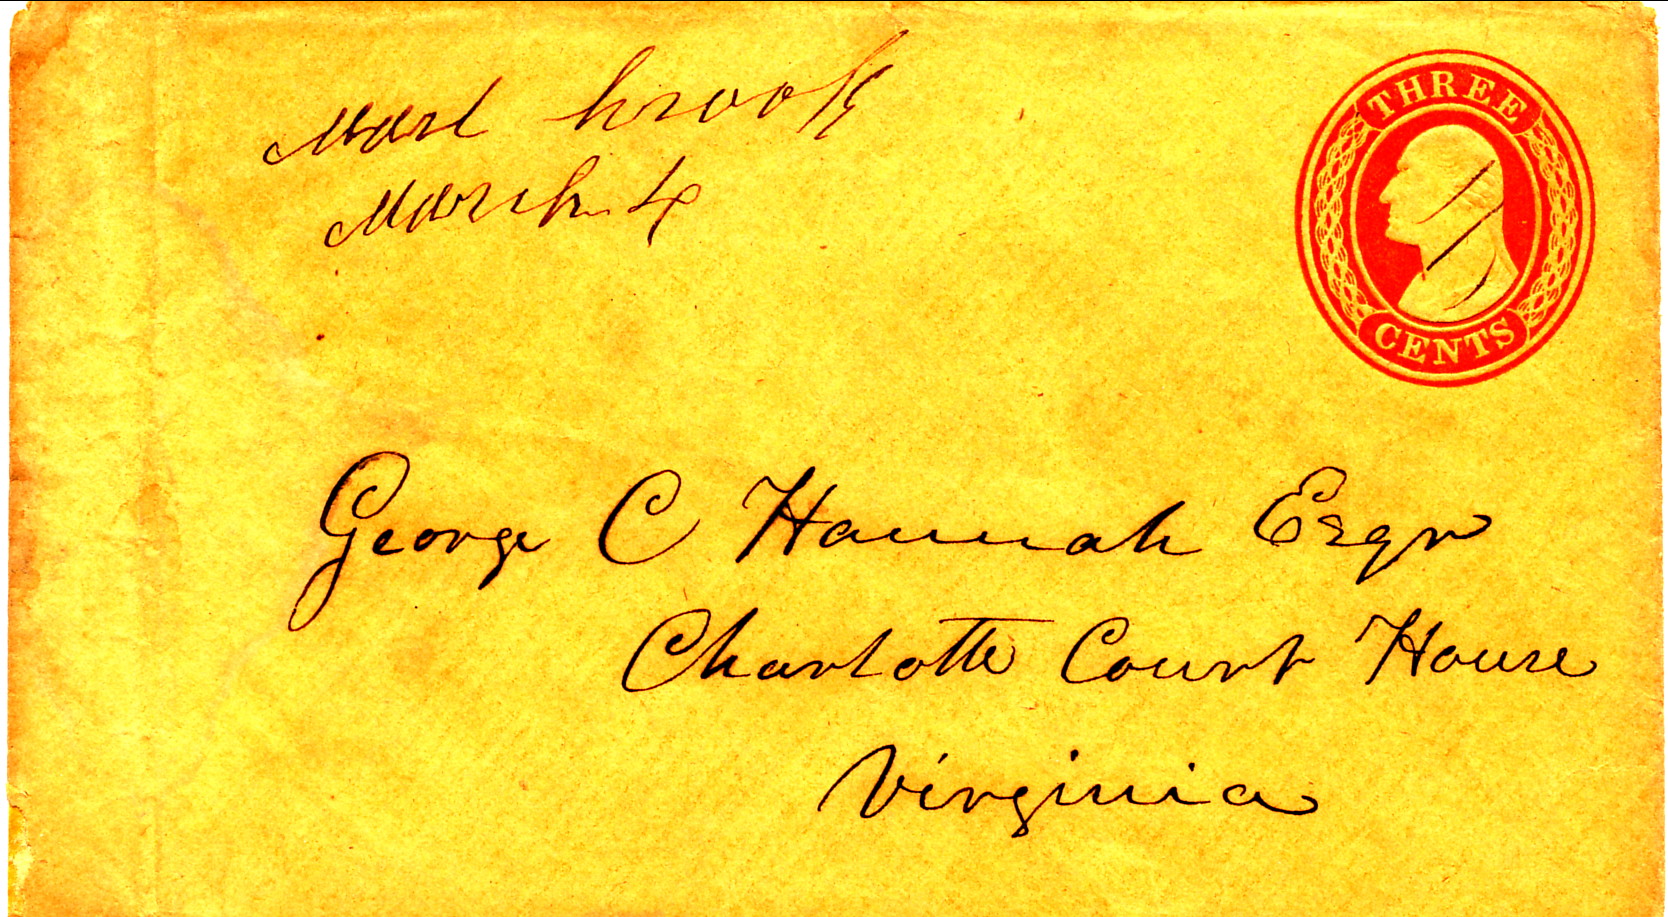 Marl brook
March 4
THREE
CENTS
George C Hannah Esqr
Charlotte Court House
Virginia